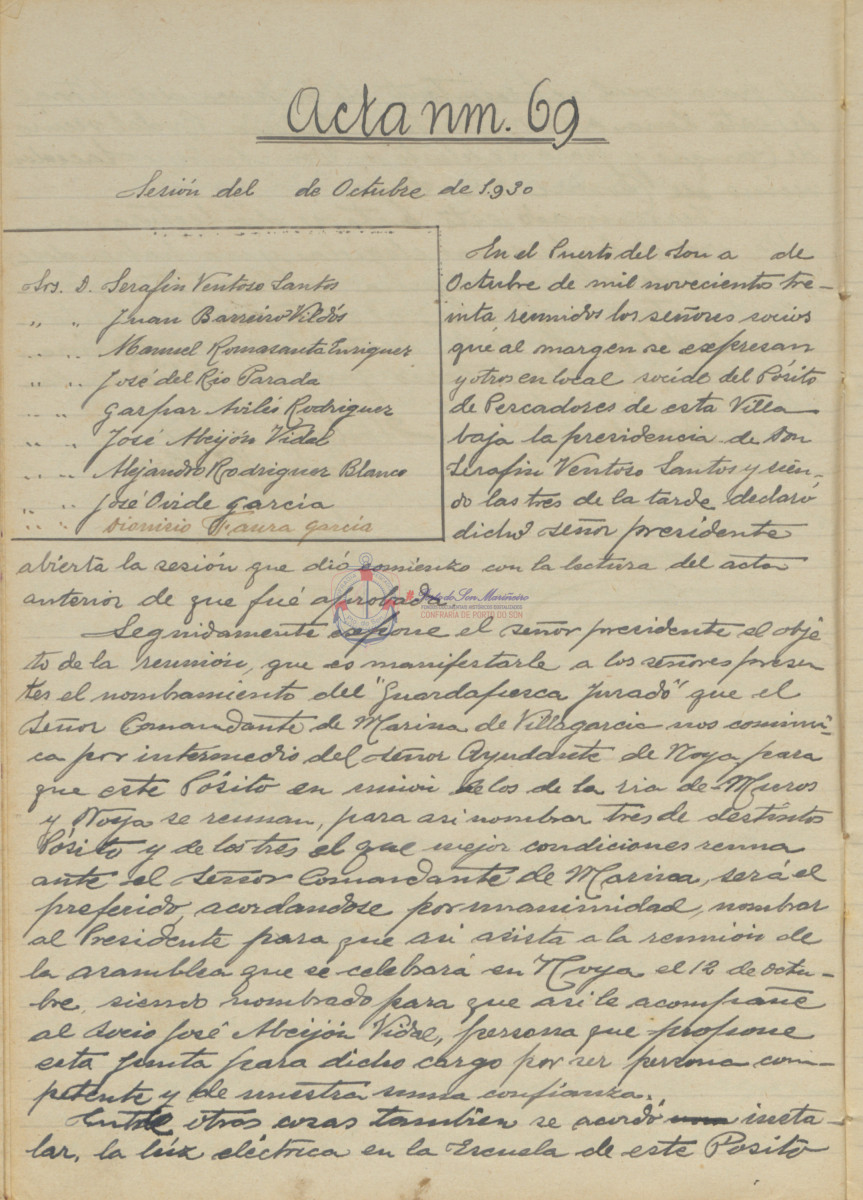 Acta nm. 69
Sesión del de Octubre de 1.930
Srs. D. Serafin Ventoso Santos
,, ,, Juan Barreiro Vildós
,, ,, Manuel Romasanta Enriquez
,, ,, José del Rio Parada
,, ,, Gaspar Avilés Rodriguez
,, ,, José Abeijón Vidal
,, ,, Alejandro Rodriguez Blanco
,, ,, José Ovide García
,, ,, Dionisio Faura García
En el Puerto del Son a de
Octubre de mil novecientos tre-
inta reunidos los señores socios
que al margen se expresan
y otros en local social del Pósito
de Pescadores de esta Villa
baja la presidencia de Don
Serafin Ventoso Santos y sien-
do las tres de la tarde declaró
dicho señor presidente
abierta la sesión que dió comienzo con la lectura del acta
anterior de que fué aprobada
Seguidamente expone el señor presidente el obje
to de la reunión, que es manifestarle a los señores presen
tes el nombamiento del "Guardapesca Jurado" que el
Señor Comandante de Marina de Villagarcia nos comuni-
ca por intermedio del señor Ayudante de Noya para
que este Pósito en unión de los de la ria de Muros
y Noya se reunan, para asi nombrar tres de destintos
Pósito y de los tres el que mejor condiciones reuna
ante el Señor Comandante de Marina, será el
preferido, acordandose por unanimidad, nombrar
al Presidente para que asi asista a la reunión de
la asamblea que se celebrará en Noya el 12 de octu-
bre, siendo nombrado para que asi le acompañe
al socio José Abeijón Vidal, persona que propone
esta Junta para dicho cargo por ser persona com-
petente y de nuestra suma confianza.
Entre otras cosas tambien se acordó insta-
lar, la lúz eléctrica en la Escuela de este Posito
Porto do Son Mariñeiro
CONFRARÍA DE PORTO DO SON